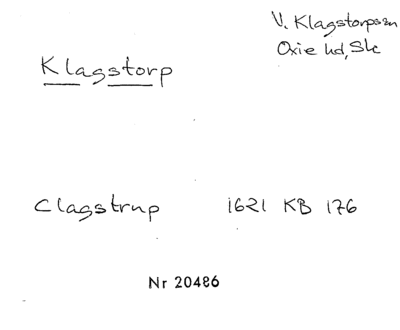 V. Klagstorps sn
Oxie hd, Sk
Klagstorp
Clagstrup 1621 KB 176
Nr 20486